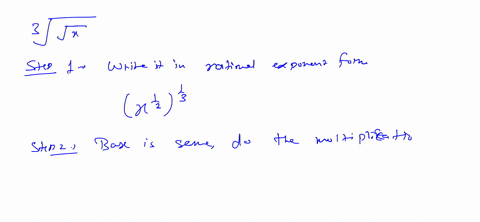 ∛√x
Step 1→ Write it in rational exponent form
(x^{1/2})^{1/3}
Step 2→ Base is same, do the